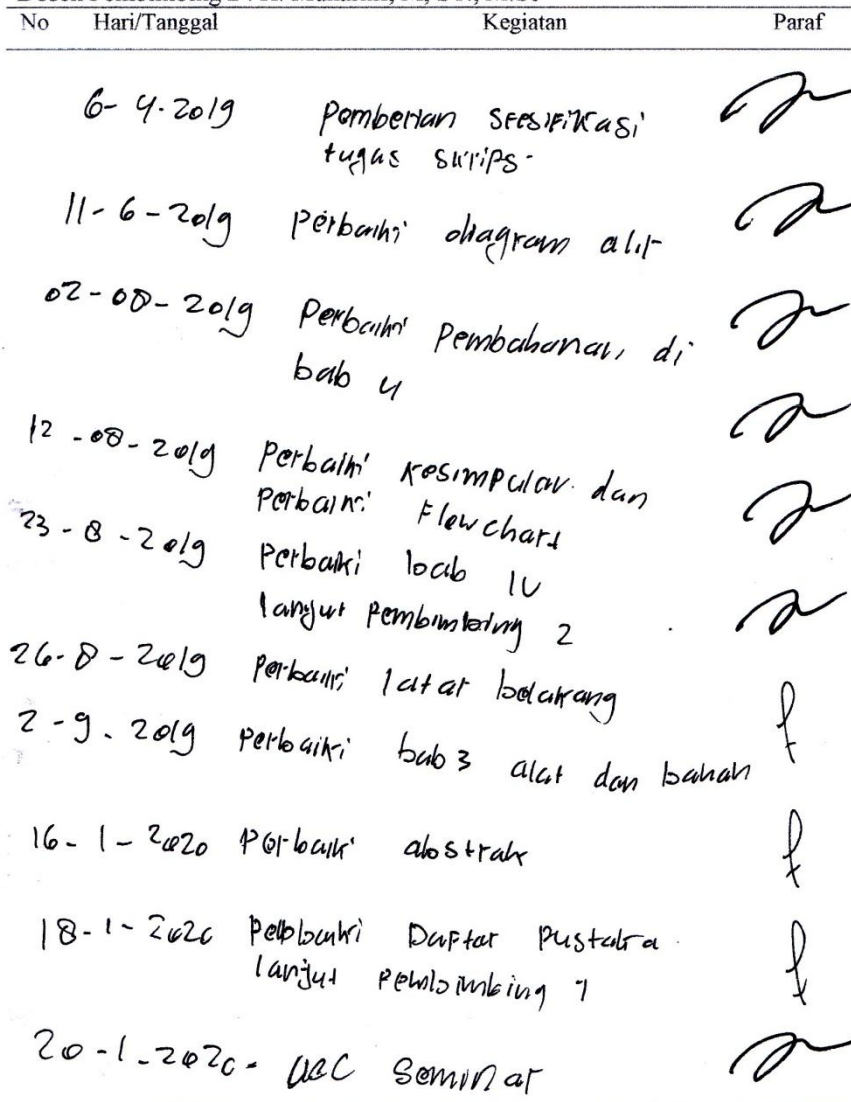 No Hari/Tanggal Kegiatan Paraf
6-4-2019 Pemberian spesifikasi
tugas skrips-
11-6-2019 Perbaiki diagram alir
02-08-2019 Perbaiki Pembahasan di
bab 4
12-08-2019 Perbaiki Kesimpulan dan
Perbaiki Flowchart
23-8-2019 Perbaiki bab IV
lanjut Pembimbing 2
26-8-2019 Perbaiki latar belakang
2-9-2019 Perbaiki bab 3 alat dan bahan
16-1-2020 Perbaiki abstrak
18-1-2020 Perbaiki Daftar Pustaka
lanjut Pembimbing 1
20-1-2020 ACC Seminar